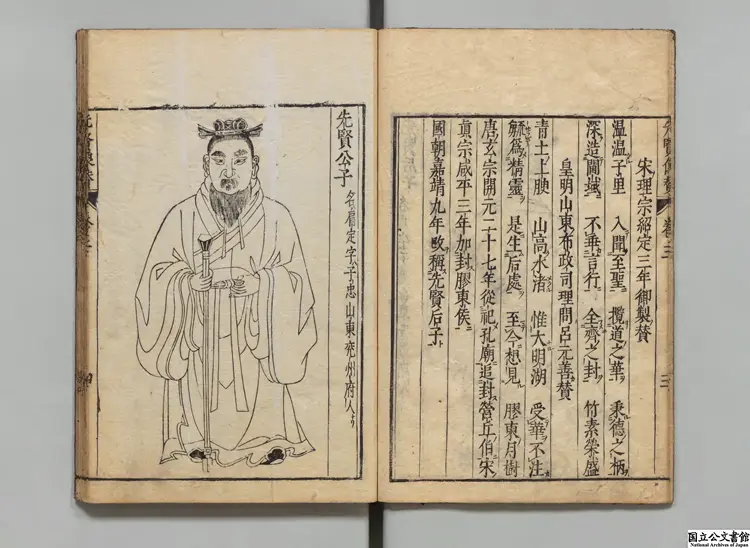 宋理宗紹定三年御製賛
温温子里 入聞至聖 攬道之華 秉德之柄
深造閫域 不垂言行 全齊之封 竹素榮盛
皇明山東布政司理問呂元善賛
青土上腴 山高水渚 惟大明湖 受華不注
毓爲精靈 是生后處 至今想見 膠東月樹
唐玄宗開元二十七年從祀孔廟追封營丘伯宋
眞宗咸平三年加封膠東侯
國朝嘉靖九年改稱先賢后子
先賢公子 名肩定字子忠山東兖州府人
国立公文書館
National Archives of Japan